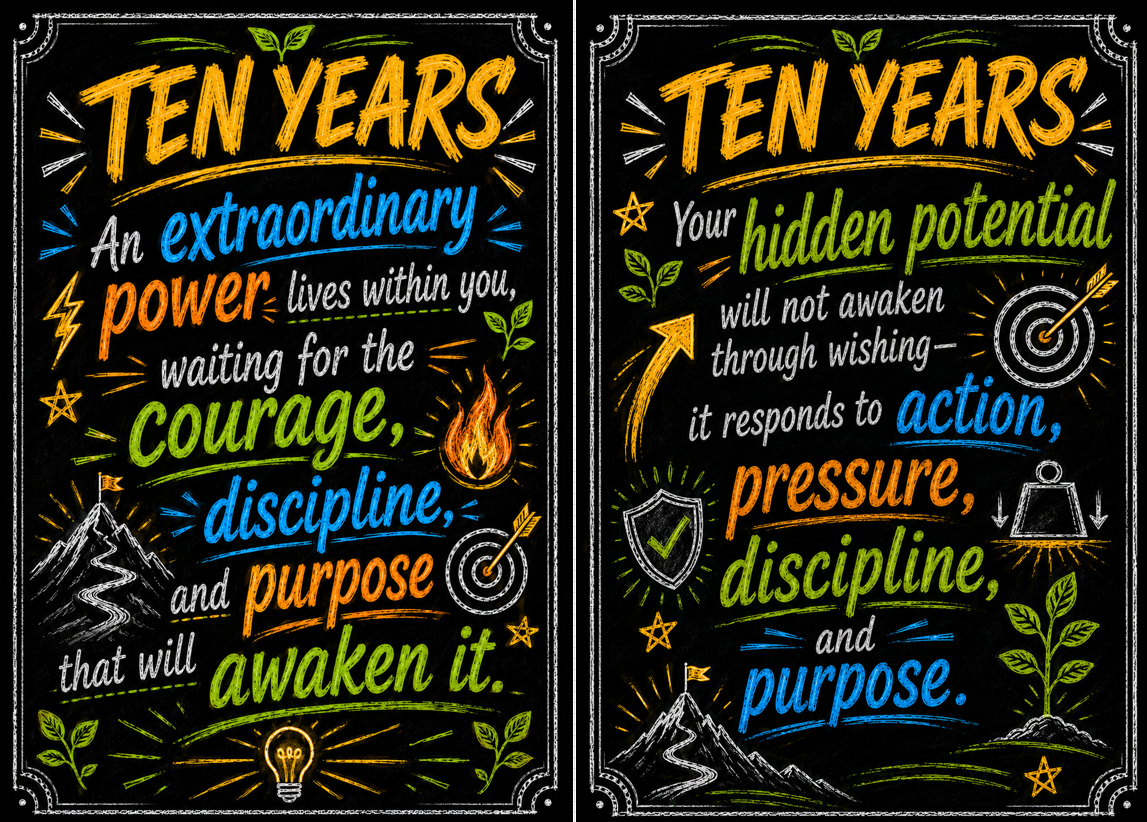 TEN YEARS
An extraordinary
power lives within you,
waiting for the
courage,
discipline,
and purpose
that will awaken it.
TEN YEARS
Your hidden potential
will not awaken
through wishing—
it responds to action,
pressure,
discipline,
and
purpose.